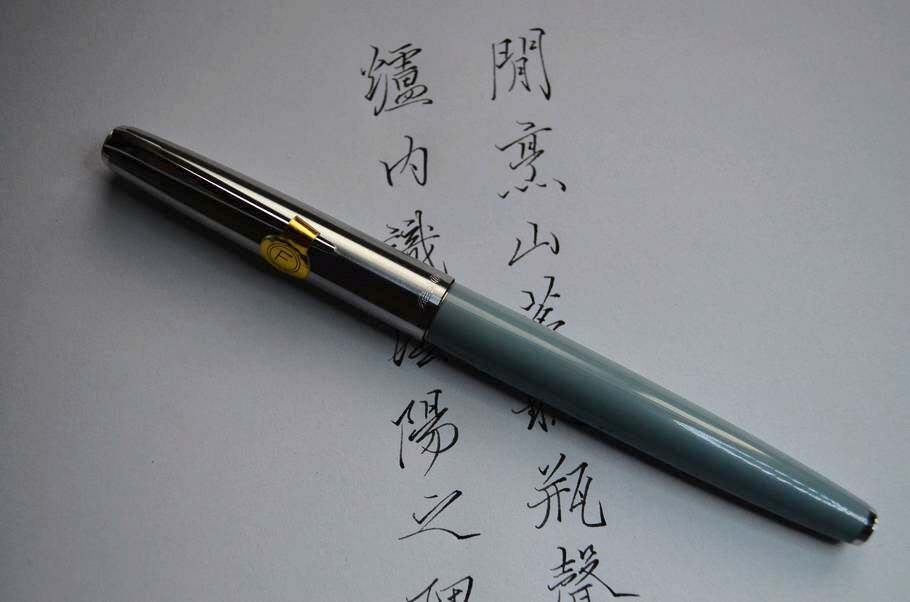 閒烹山瓶聲
爐內識陽之
F